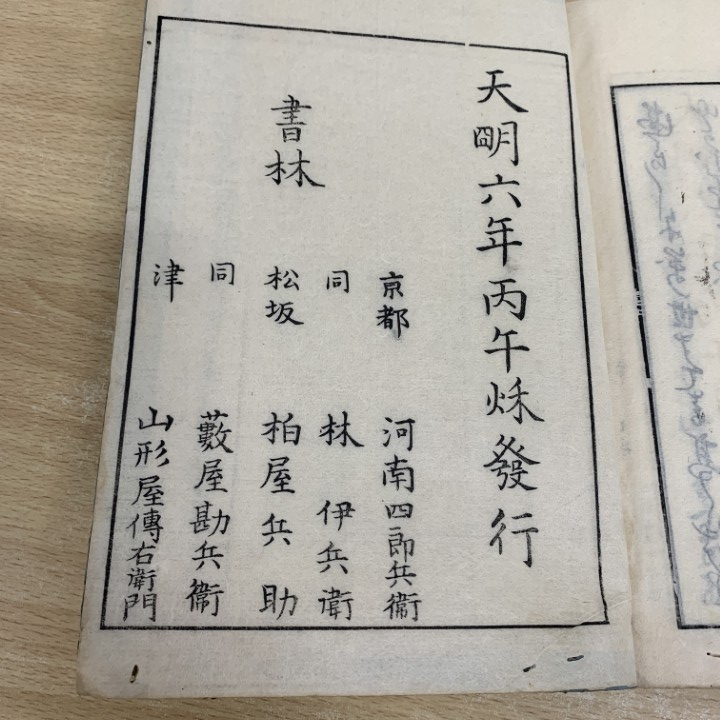 天明六年丙午秌發行
書林
京都 河南四郎兵衞
同 林伊兵衛
松坂 柏屋兵助
同 藪屋勘兵衞
津 山形屋傳右衛門